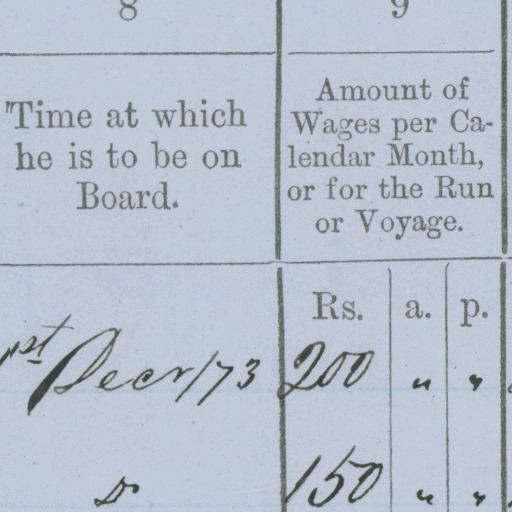 8
9
Time at which
he is to be on
Board.
Amount of
Wages per Ca-
lendar Month,
or for the Run
or Voyage.
Rs. a. p.
1st Decr/73 200 " "
Do 150 " "